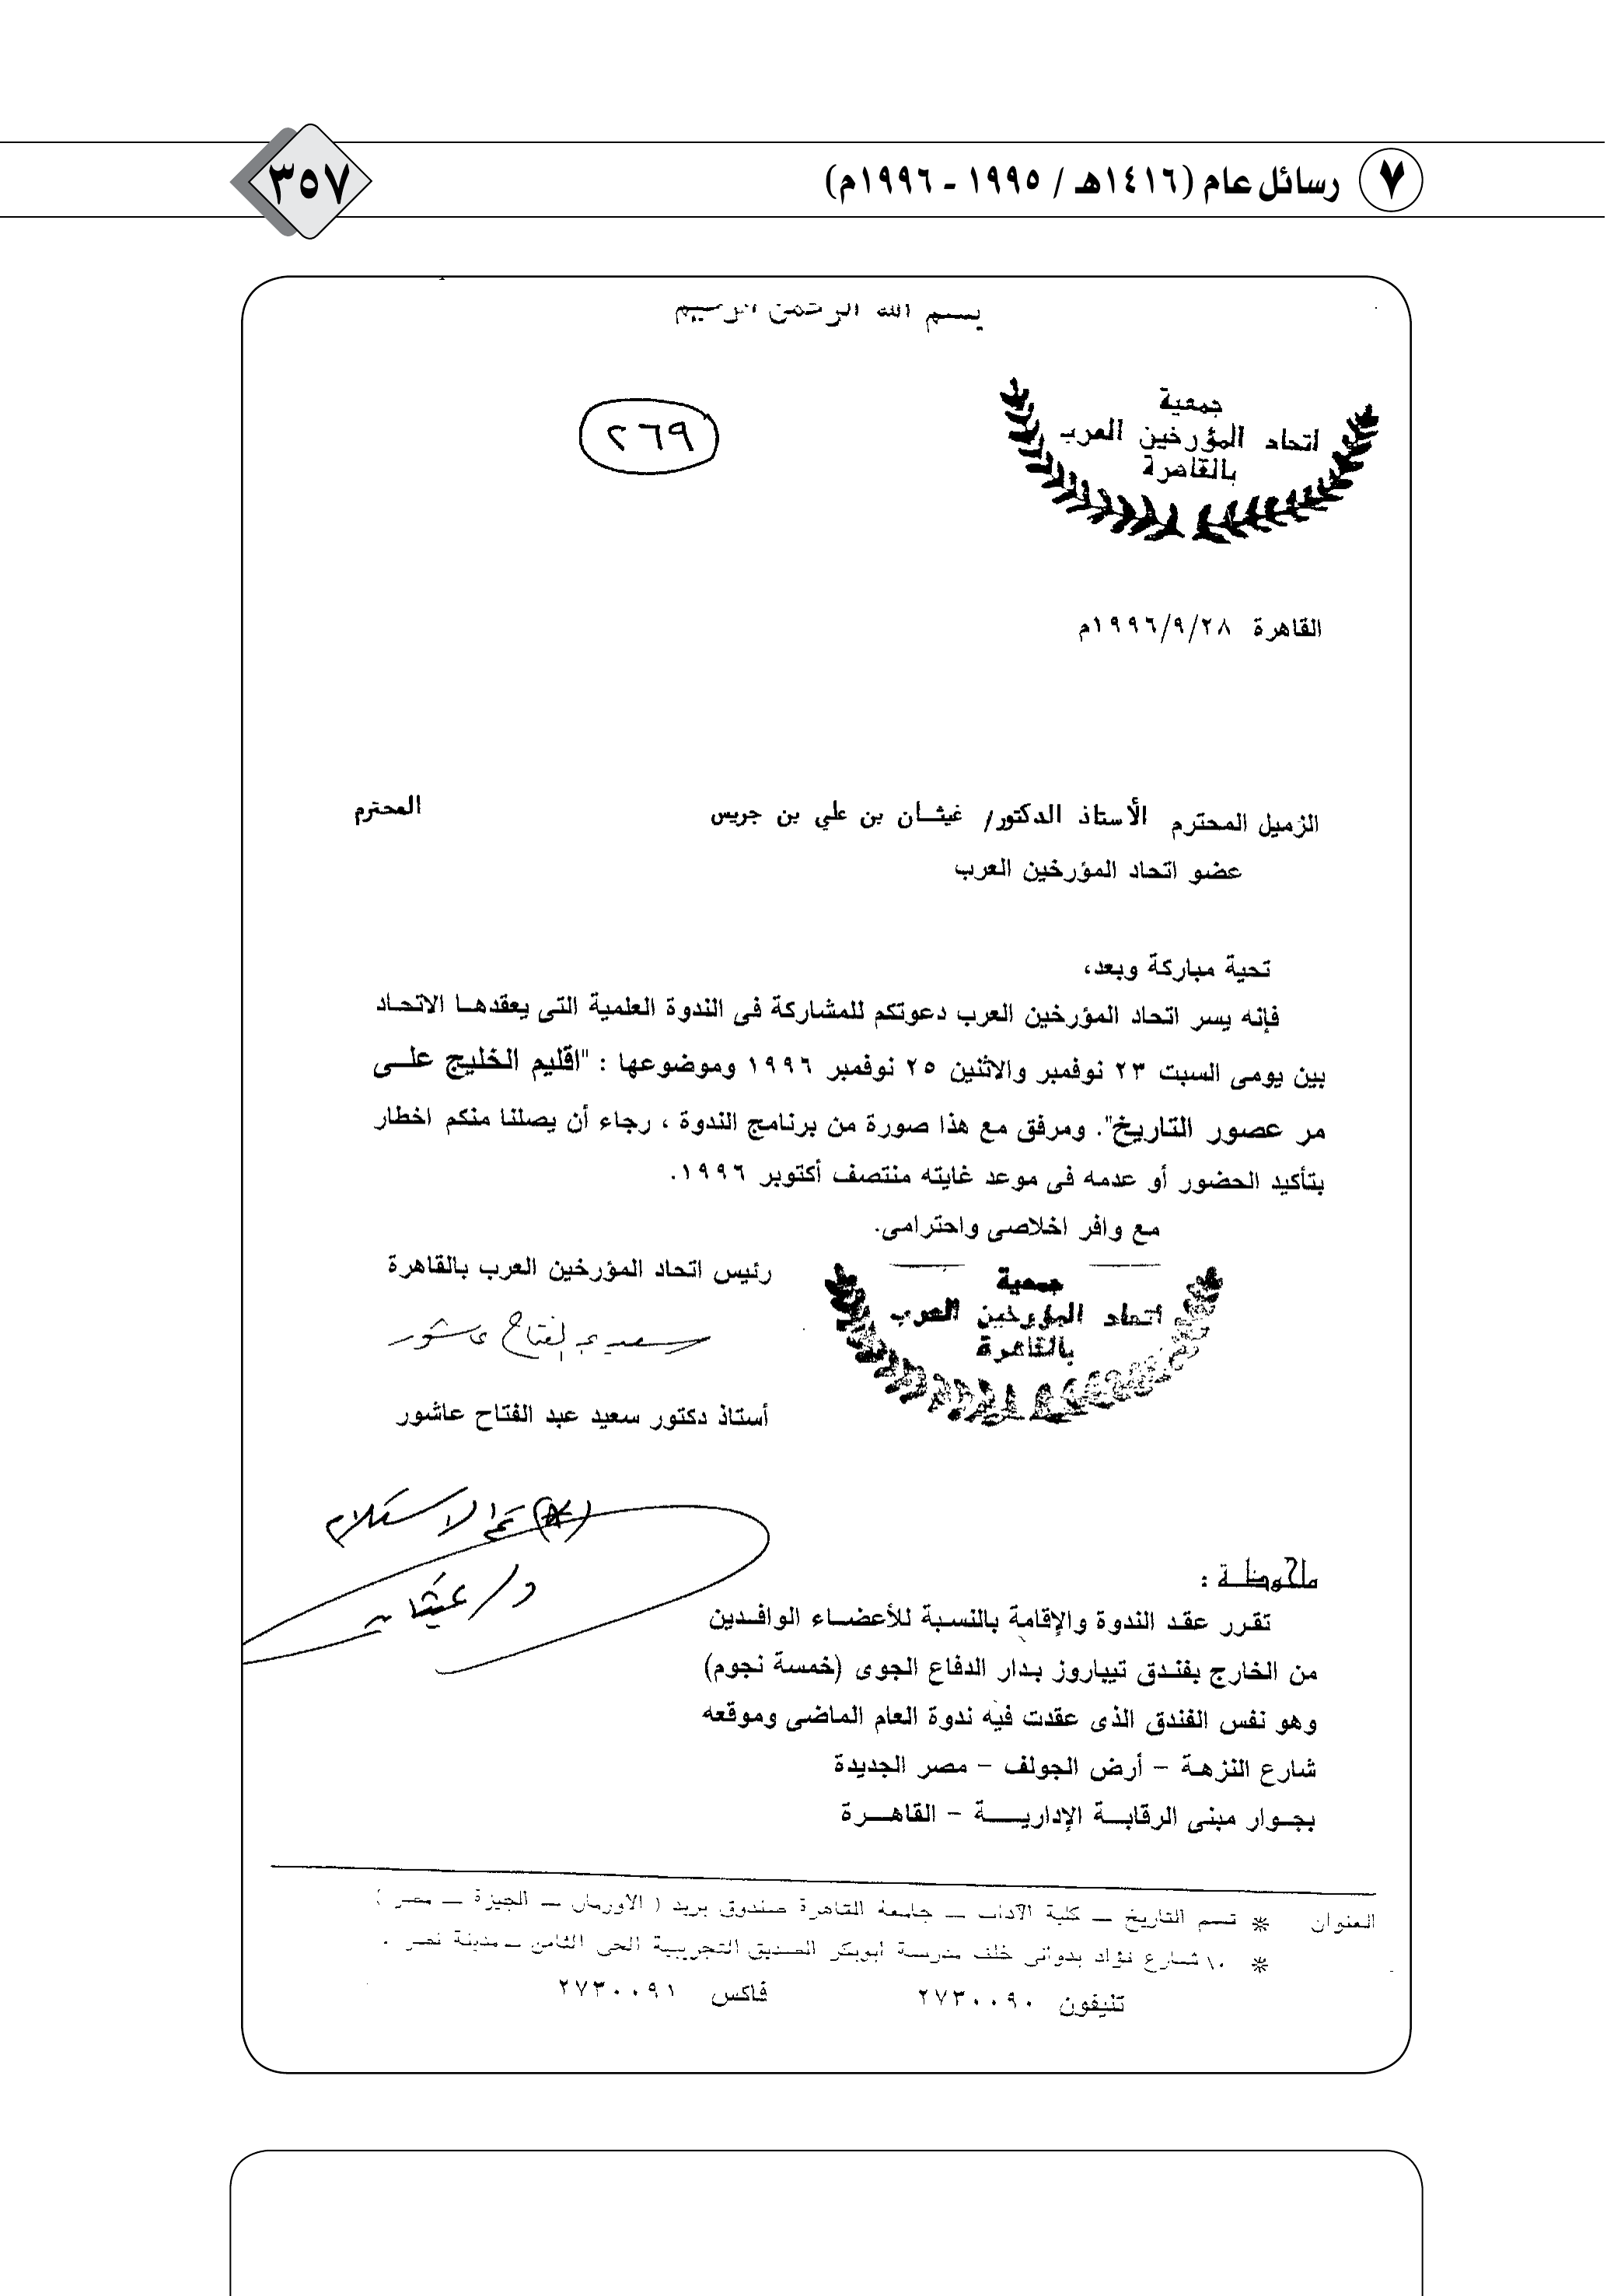 ٧ رسائل عام (١٤١٦هـ / ١٩٩٥ - ١٩٩٦م)
٣٥٧
بسم الله الرحمن الرحيم
جمعية
اتحاد المؤرخين العرب
بالقاهرة
٢٦٩
القاهرة ٢٨/٩/١٩٩٦م
الزميل المحترم الأستاذ الدكتور/ غيثــان بن علي بن جريس المحترم
عضو اتحاد المؤرخين العرب
تحية مباركة وبعد،
فإنه يسر اتحاد المؤرخين العرب دعوتكم للمشاركة فى الندوة العلمية التى يعقدهــا الاتحــاد
بين يومى السبت ٢٣ نوفمبر والاثنين ٢٥ نوفمبر ١٩٩٦ وموضوعها : "اقليم الخليج علــى
مر عصور التاريخ". ومرفق مع هذا صورة من برنامج الندوة ، رجاء أن يصلنا منكم اخطار
بتأكيد الحضور أو عدمه فى موعد غايته منتصف أكتوبر ١٩٩٦.
مع وافر اخلاصى واحترامى.
رئيس اتحاد المؤرخين العرب بالقاهرة
جمعية
اتحاد المؤرخين العرب
بالقاهرة
سعيد عبد الفتاح عاشور
أستاذ دكتور سعيد عبد الفتاح عاشور
(*) تم الاستلام
د/ غيثان
ملحوظــة :
تقـرر عقـد الندوة والإقامة بالنسـبة للأعضــاء الوافـدين
من الخارج بفنـدق تيباروز بـدار الدفاع الجوى (خمسة نجوم)
وهو نفس الفندق الذى عقدت فيه ندوة العام الماضى وموقعه
شارع النزهـة – أرض الجولف – مصر الجديدة
بجــوار مبنى الرقابــة الإداريــــة – القاهــرة
العنوان * قسم التاريخ ــ كلية الآداب ــ جامعة القاهرة صندوق بريد ( الاورمان ــ الجيزة ــ مصر )
* ١٠ شارع فؤاد بدوانى خلف مدرسة أبوبكر الصديق التجريبية الحى الثامن ــ مدينة نصر .
تليفون ٢٧٣٠٠٩٠ فاكس ٢٧٣٠٠٩١